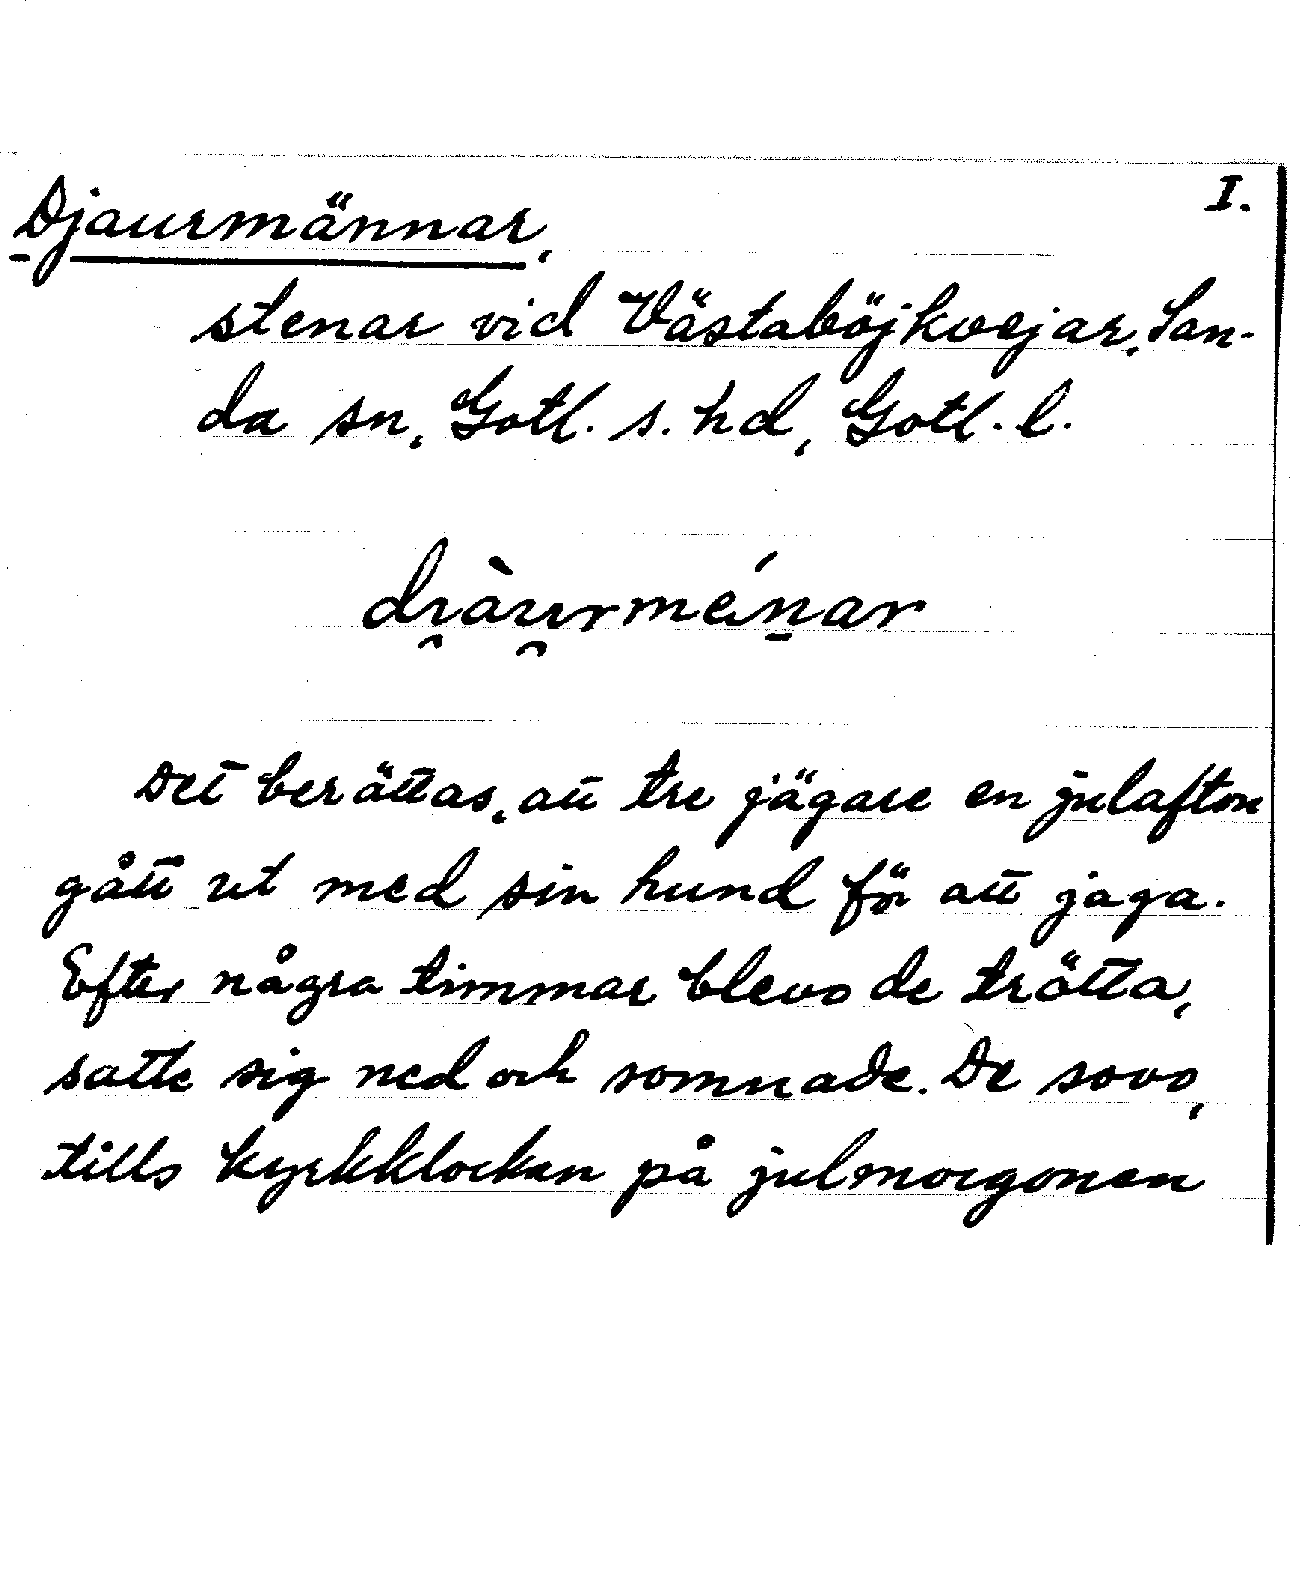 I.
Djaurmännar,
stenar vid Västaböjkvejar, San-
da sn, Gotl. s. hd, Gotl. l.
di̯àu̯rménar
Det berättas, att tre jägare en julafton
gått ut med sin hund för att jaga.
Efter några timmar blevo de trötta,
satte sig ned och somnade. De sovo,
tills kyrkklockan på julmorgonen